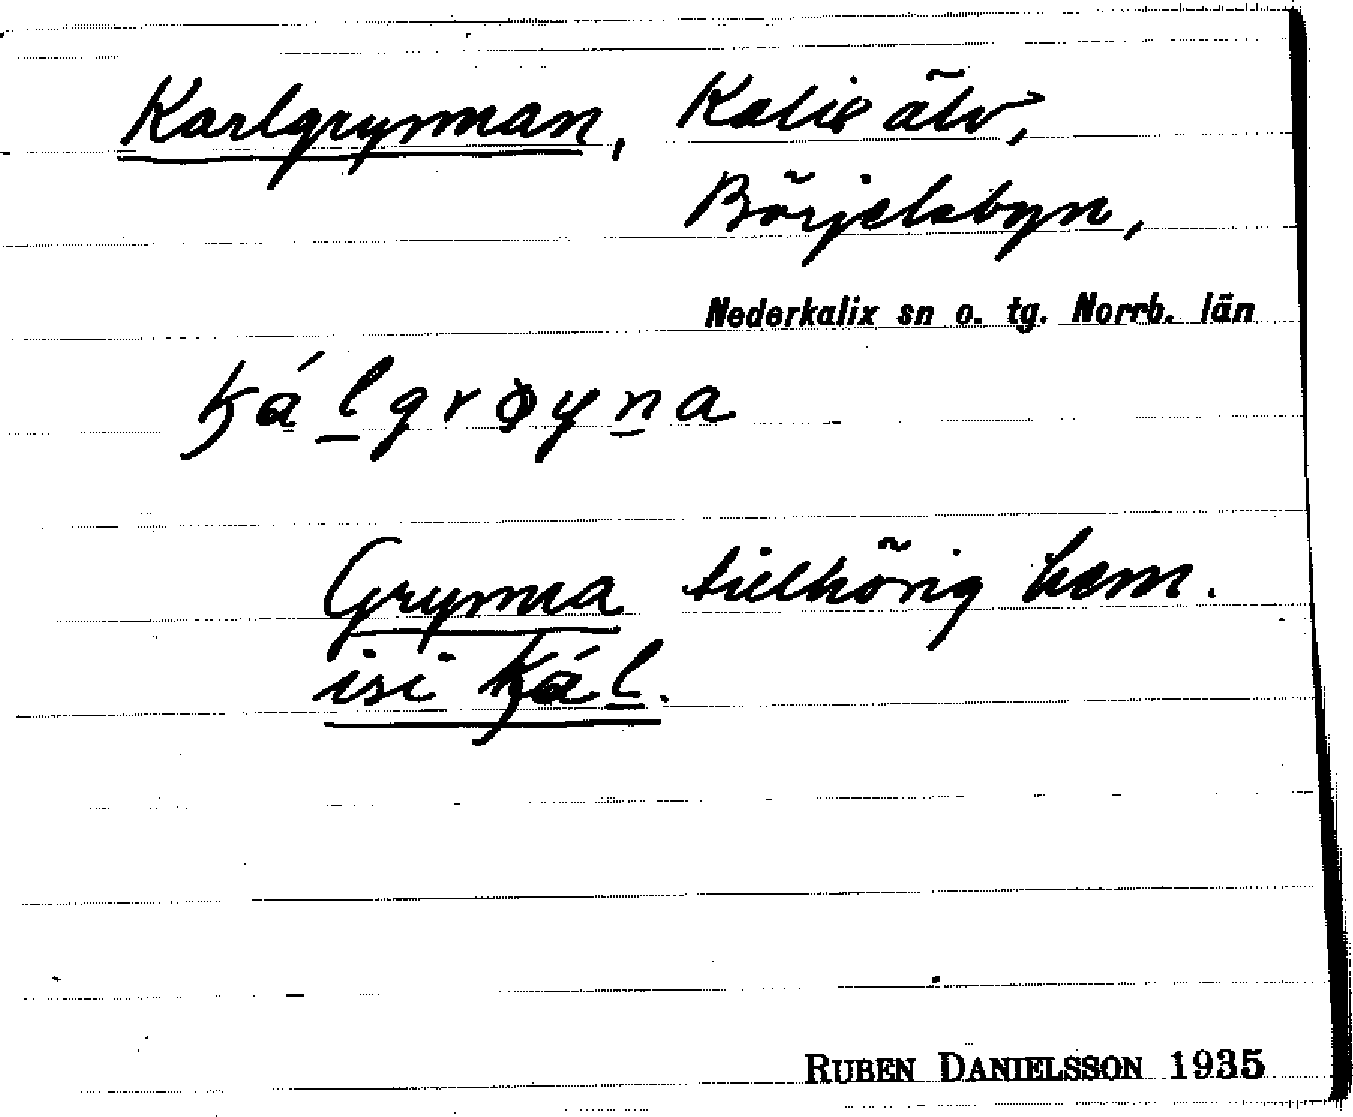 Karlgrynnan, Kalix älv,
Börjelsbyn,
Nederkalix sn o. tg. Norrb. län
Grynna tillhörig hem.
isi Kál.
RUBEN DANIELSSON 1935